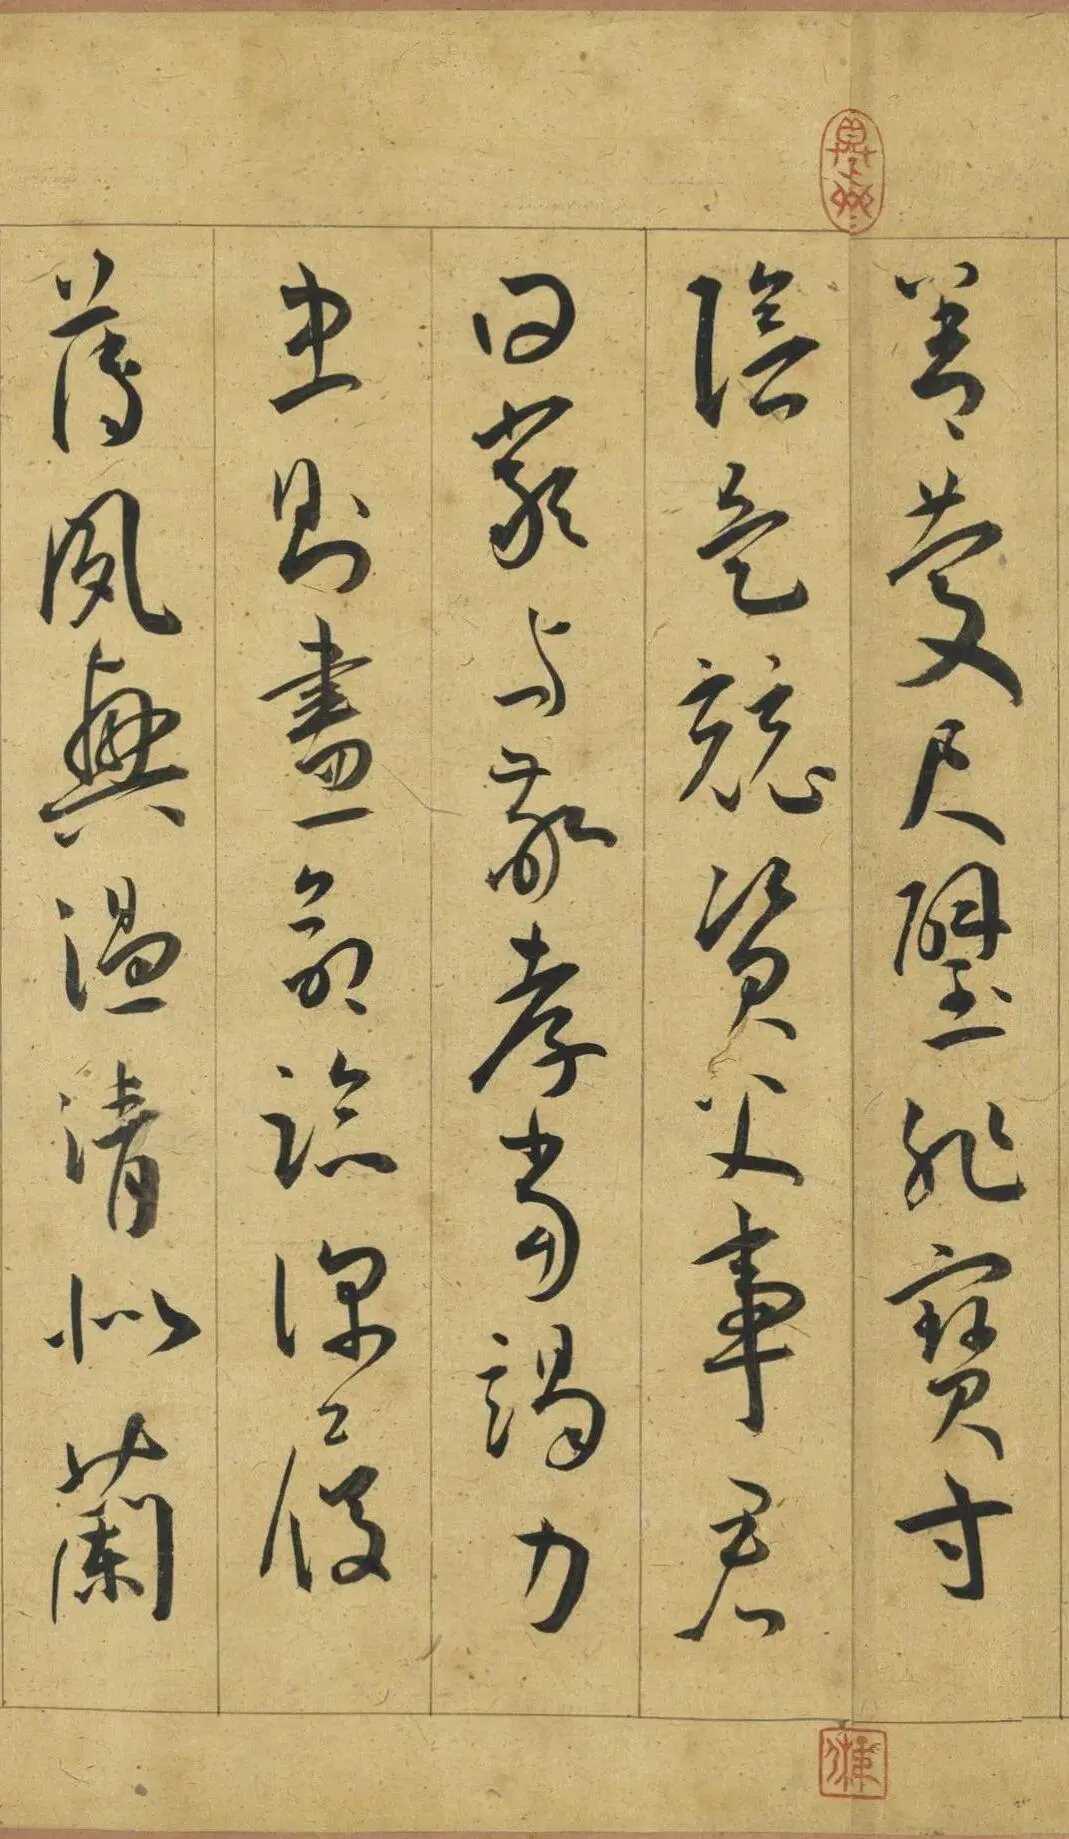 善慶尺璧非寶寸
陰是競資父事君
曰嚴与敬孝當竭力
忠則盡命臨深履
薄夙興溫清似蘭